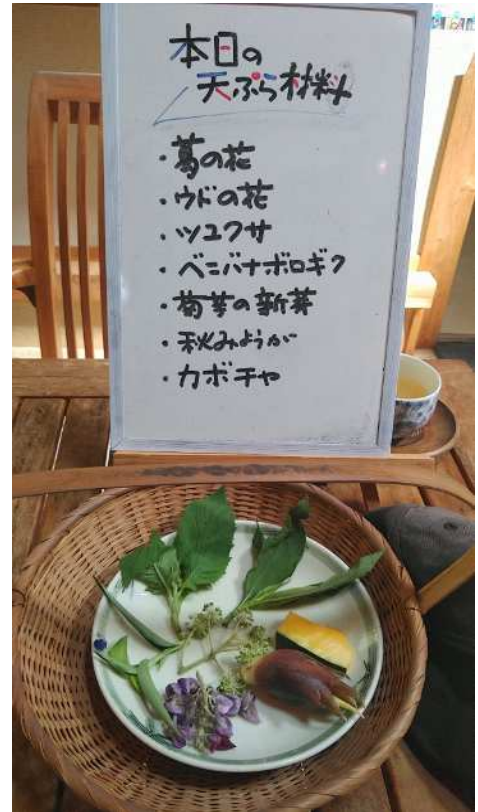 本日の
天ぷら材料
・葛の花
・ウドの花
・ツユクサ
・ベニバナボロギク
・菊芋の新芽
・秋みょうが
・カボチャ